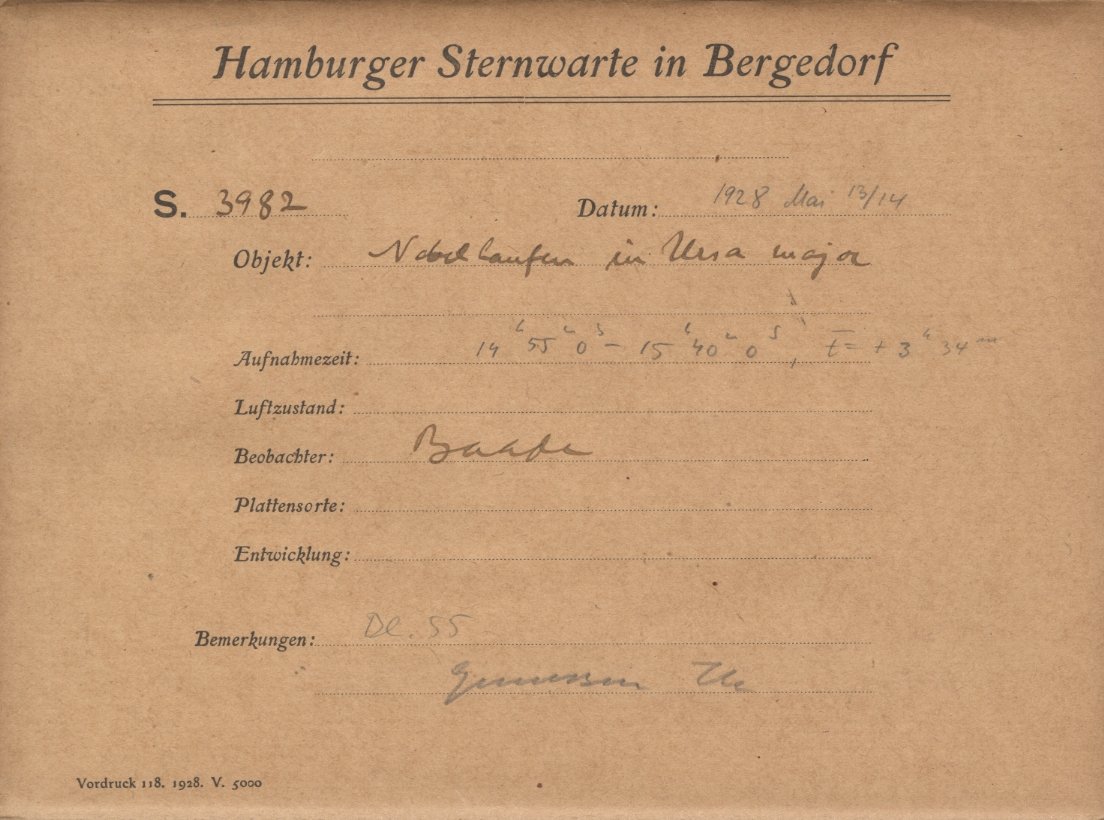 Hamburger Sternwarte in Bergedorf
S. 3982 Datum: 1928 Mai 13/14
Objekt: Nebelhaufen in Ursa major
Aufnahmezeit: 14h 55m 0s – 15h 40m 0s, t = + 3h 34m
Luftzustand:
Beobachter: Baade
Plattensorte:
Entwicklung:
Bemerkungen: Dl. 55
Gemessen
Vordruck 118. 1928. V. 5000